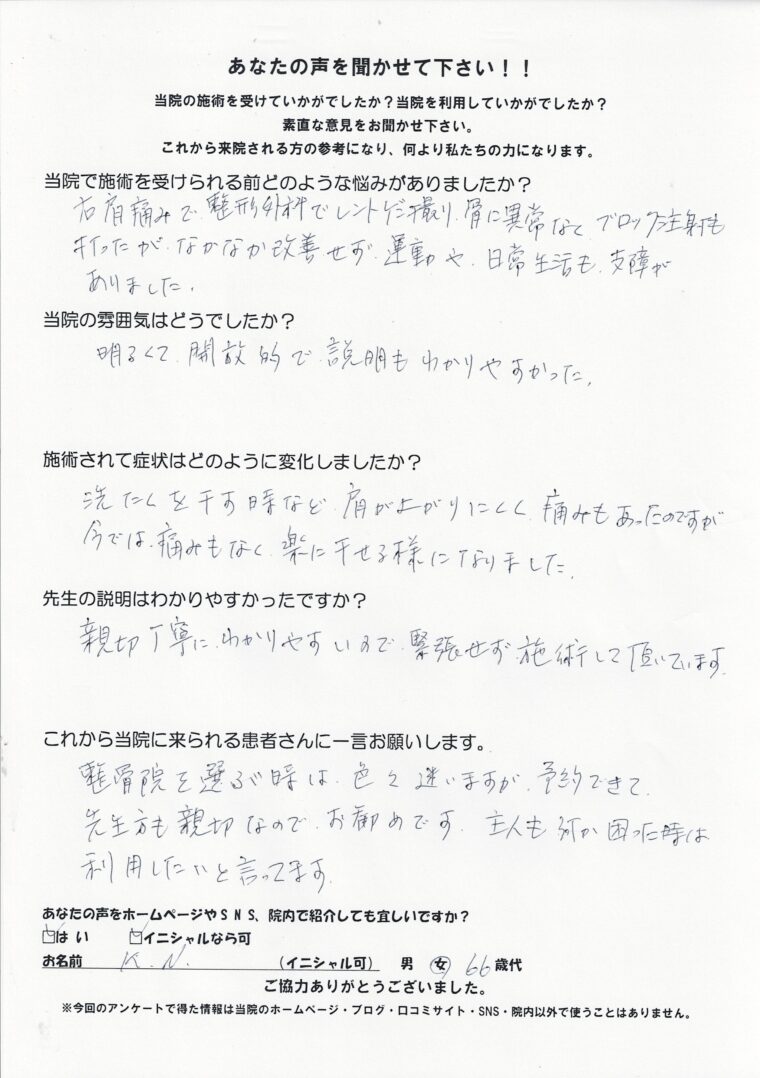 あなたの声を聞かせて下さい！！
当院の施術を受けていかがでしたか？当院を利用していかがでしたか？
素直な意見をお聞かせ下さい。
これから来院される方の参考になり、何より私たちの力になります。
当院で施術を受けられる前どのような悩みがありましたか？
右肩痛みで、整形外科でレントゲン撮り、骨に異常なく ブロック注射も
打ったが、なかなか改善せず、運動や、日常生活も、支障が
ありました。
当院の雰囲気はどうでしたか？
明るくて、開放的で、説明もわかりやすかった。
施術されて症状はどのように変化しましたか？
洗たくを干す時など、肩が上がりにくく、痛みもあったのですが
今では、痛みもなく、楽に干せる様になりました。
先生の説明はわかりやすかったですか？
親切丁寧に、わかりやすいので、緊張せず、施術して頂いています。
これから当院に来られる患者さんに一言お願いします。
整骨院を選ぶ時は、色々迷いますが、予約できて、
先生方も親切なので、お勧めです。主人も何か困った時は
利用したいと言ってます。
あなたの声をホームページやＳＮＳ、院内で紹介しても宜しいですか？
☑はい ☑イニシャルなら可
お名前 K.N. （イニシャル可） 男 女 66歳代
ご協力ありがとうございました。
※今回のアンケートで得た情報は当院のホームページ・ブログ・口コミサイト・SNS・院内以外で使うことはありません。